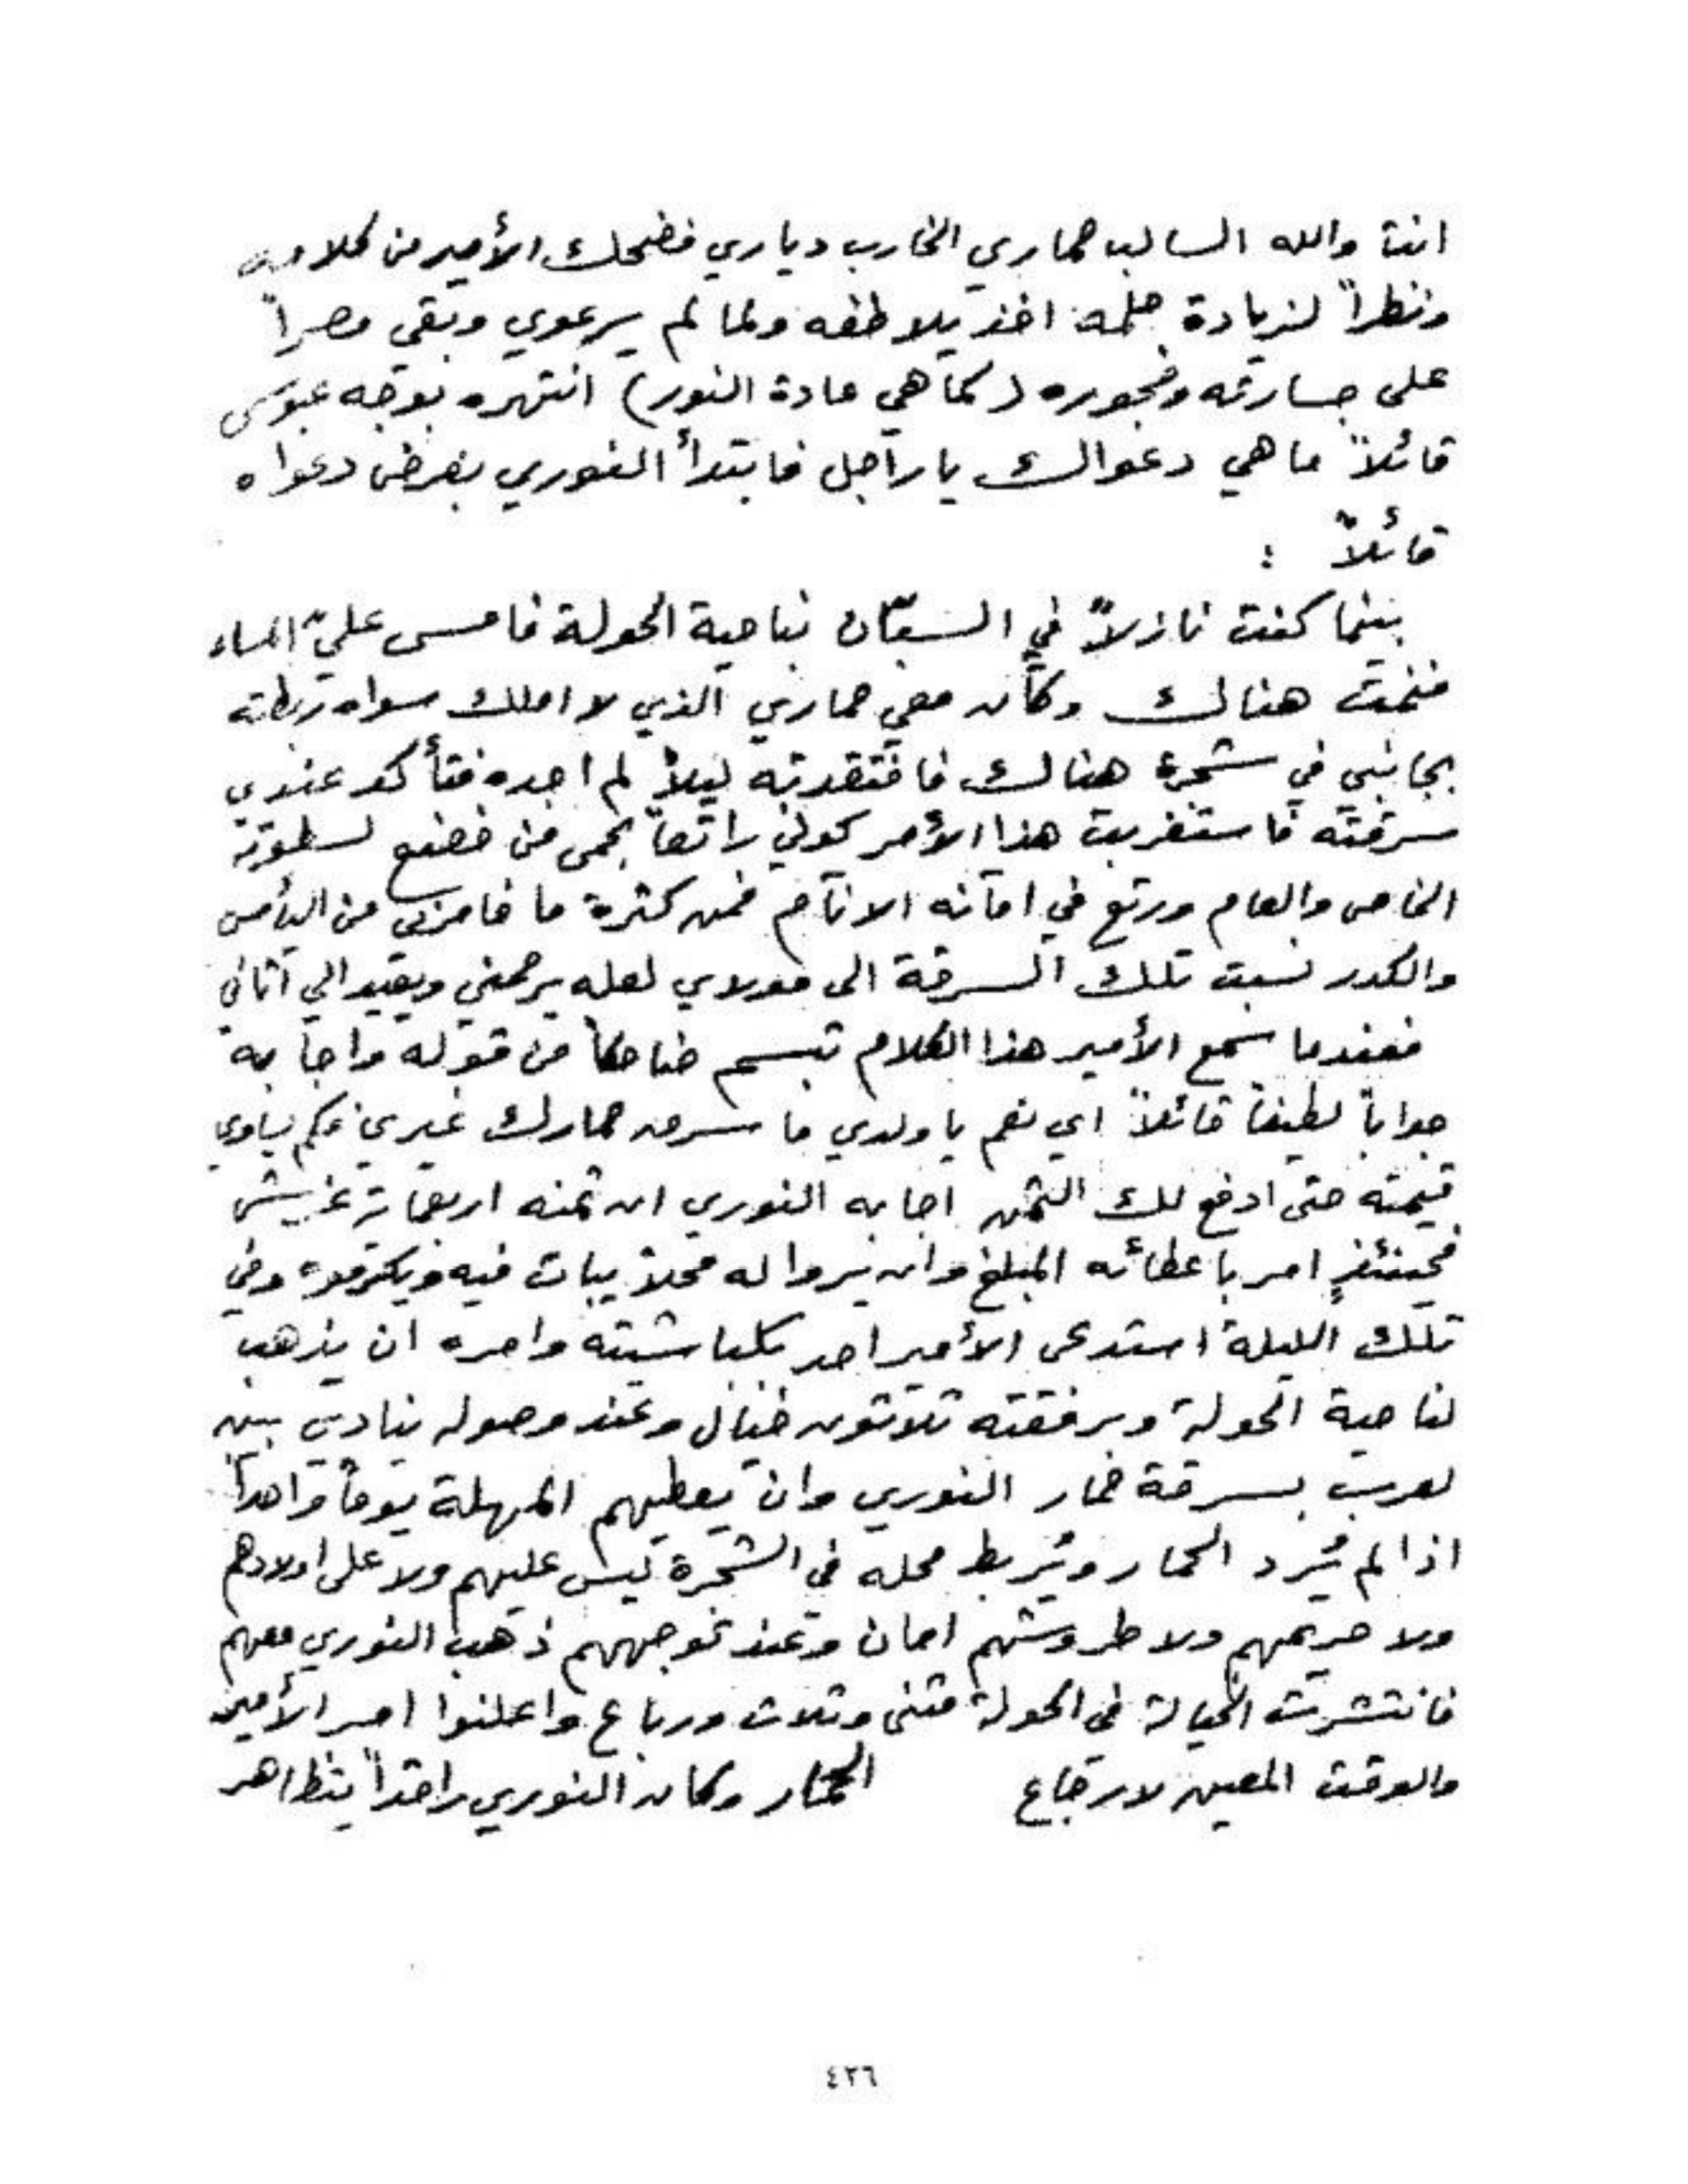 انت والله السالب حماري الخارب دياري فضحك الأمير من كلامه
ونظراً لزيادة حلمه اخذ يلاطفه ولما لم يرعوي وبقي مصراً
على جسارته وفجوره (كما هي عادة النور) انتهره بوجه عبوس
قائلاً ما هي دعواك يا راجل فابتدأ النوري بعرض دعواه
قائلاً :
بينما كنت نازلاً في السبّان بناحية الحولة فامسى عليّ المساء
فنمت هنالك وكان معي حماري الذي لا املك سواه ربطته
بجانبي في شجرة هنالك فافتقدته ليلاً لم اجده فتأكد عندي
سرقته فاستغربت هذا الأمر كوني راتعاً بحمى من خضع لسطوته
الخاص والعام ورتع في امانه الانام فمن كثرة ما خامرني من اليأس
والكدر نسبت تلك السرقة الى مولاي لعله يرحمني ويعيد الي اتاني
فعندما سمع الأمير هذا الكلام تبسم ضاحكاً من قوله واجابه
جواباً لطيفاً قائلاً اي نعم يا ولدي ما سرق حمارك غيري فكم يساوي
قيمته حتى ادفع لك الثمن اجابه النوري ان ثمنه اربعماية غرش
فحينئذٍ امر باعطائه المبلغ وان يروا له محلاً يبات فيه ويكرموه وفي
تلك الليلة استدعى الأمير احد بكباشيته وامره ان يذهب
لناحية الحولة وبرفقته ثلاثون خيال وعند وصوله ينادي بين
لعرب بسرقة حمار النوري وان يعطيهم المهلة يوماً واحداً
اذا لم يُرد الحمار ويُربط محله في الشجرة ليس عليهم ولا على اولادهم
ولا حريمهم ولا طروشهم امان وعند توجههم ذهب النوري معهم
فانتشرت الخيالة في الحولة مثنى وثلاث ورباع واعلنوا امر الأمير
والوقت المعين لارجاع الحمار وكان النوري راقداً يتظاهر
٤٢٦